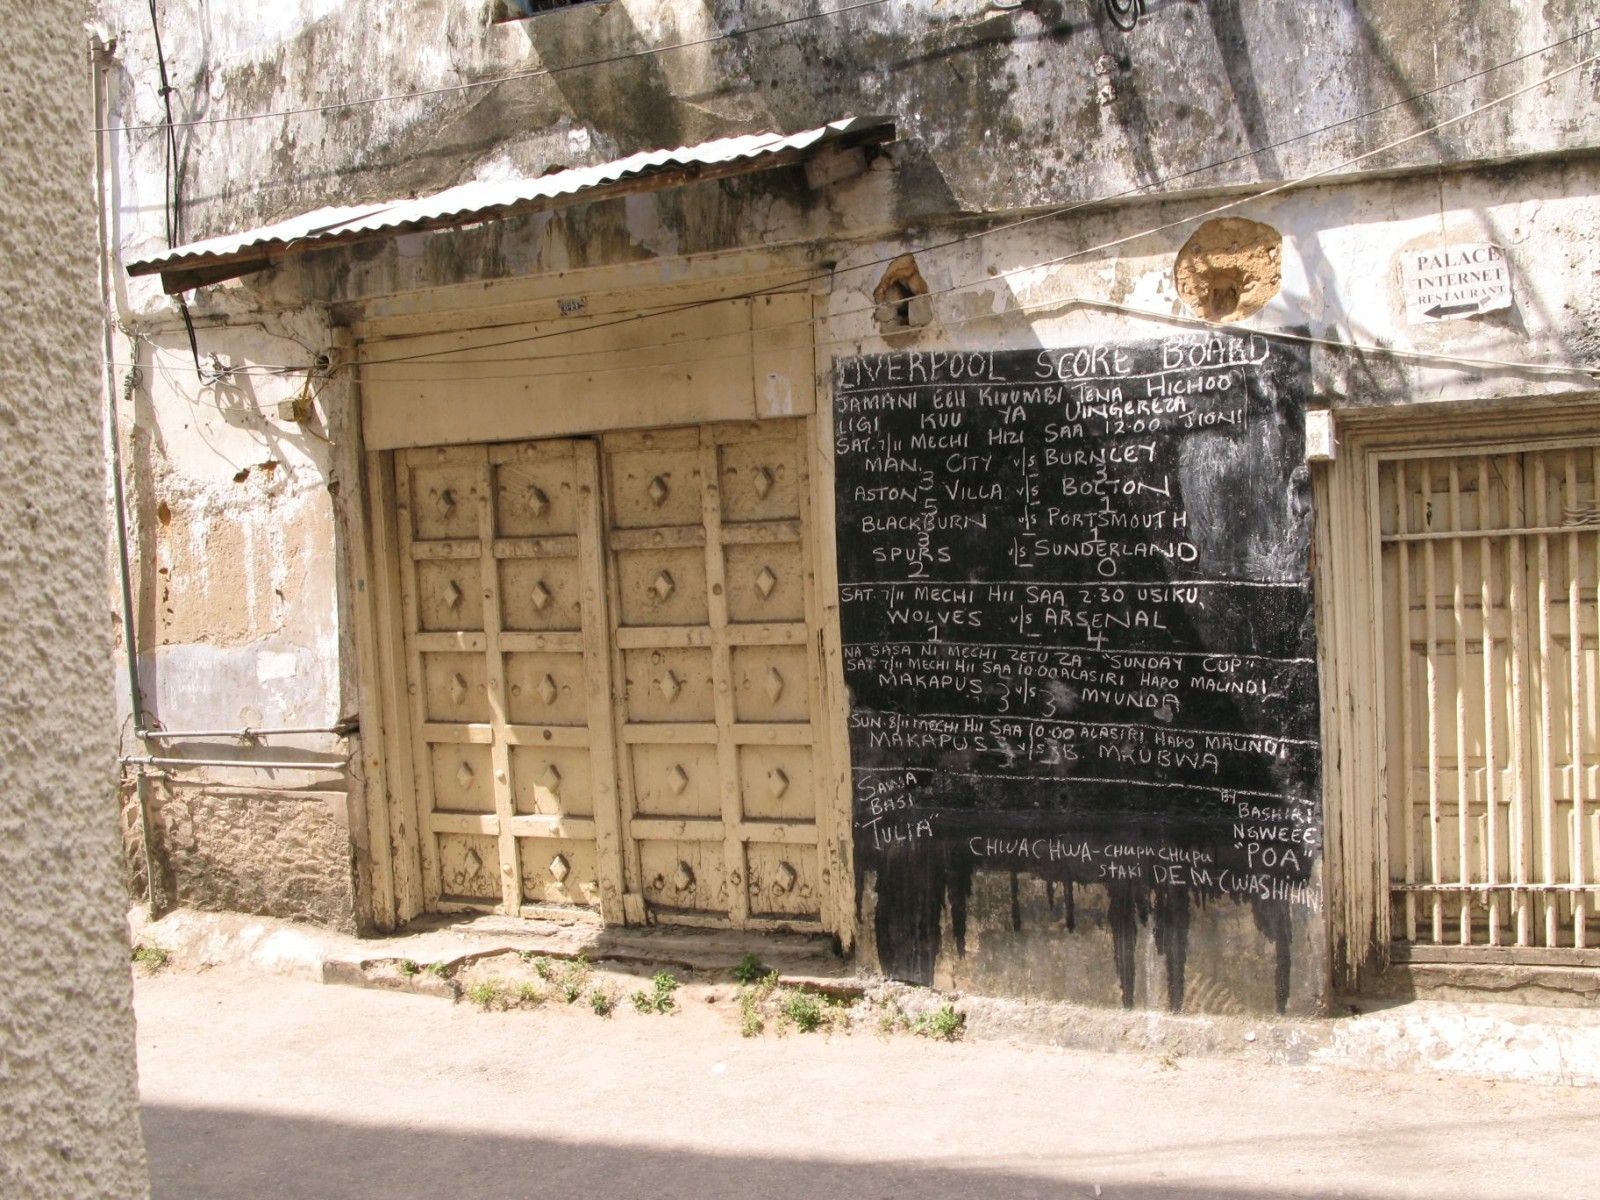 PALACE
INTERNET
RESTAURANT
LIVERPOOL SCORE BOARD
JAMANI EEH KIVUMBI TENA HICHOO
LIGI KUU YA UINGEREZA
SAT. 7/11 MECHI HIZI SAA 12.00 JIONI
MAN. CITY v/s BURNLEY
3 3
ASTON VILLA v/s BOLTON
5 1
BLACKBURN v/s PORTSMOUTH
3 1
SPURS v/s SUNDERLAND
2 0
SAT. 7/11 MECHI HII SAA 2.30 USIKU
WOLVES v/s ARSENAL
1 4
NA SASA NI MECHI ZETU ZA "SUNDAY CUP"
SAT. 7/11 MECHI HII SAA 10:00 ALASIRI HAPO MALINDI
MAKAPUS v/s MYUNDA
3 3
SUN. 8/11 MECHI HII SAA 10.00 ALASIRI HAPO MALINDI
MAKAPUS v/s B MKUBWA
SAWA
BASI
"TULIA"
BY
BASHIRI
NGWEEE
"POA"
CHWACHWA-CHUPUCHUPU
STAKI DEM (WASHIHIRI